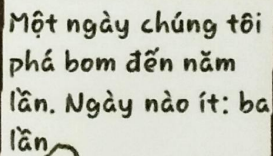 Một ngày chúng tôi
phá bom đến năm
lần. Ngày nào ít: ba
lần